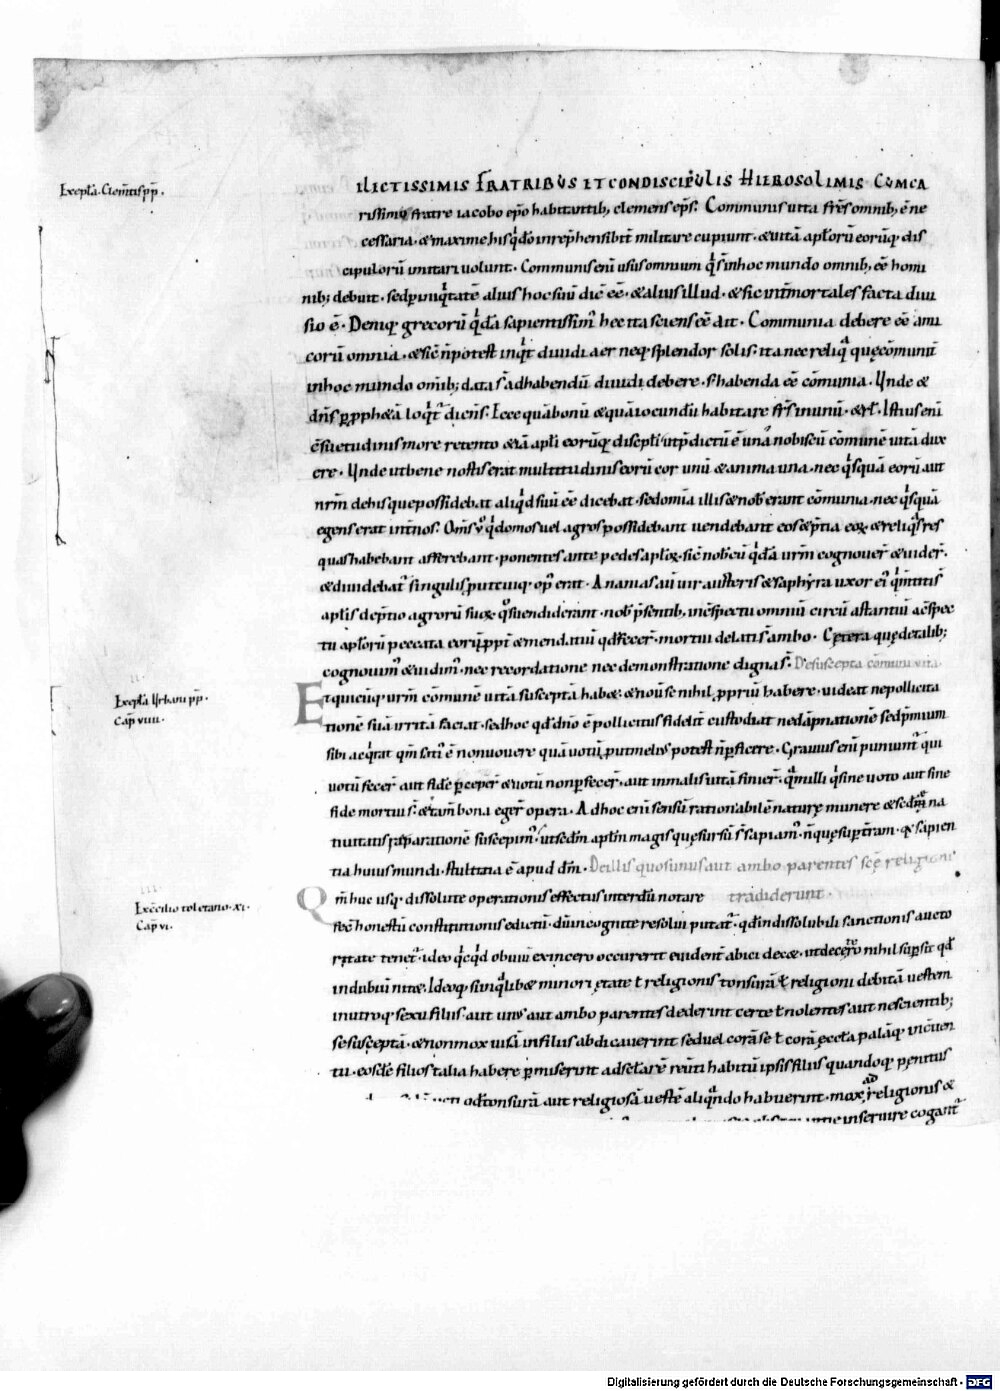 Excepta. Clemtis pp̄.
ILECTISSIMIS FRATRIBUS ET CONDISCIPULIS HIEROSOLIMIS CUM CA
rissimo fratre iacobo ep̄o habitantib; clemens ep̄s. Communis uita fr̄s omnib; ē ne
cessaria. & maxime his qͥ dō inrep̄hensibilit̄ militare cupiunt. & uitā apl̄orū eorūq; dis
cipulorū imitari uolunt. Communis enī usus omnium q̄ s̄ in hoc mundo omnib; eē homi
nib; debuit. sed ꝑ iniqͥtatē alius hoc suū dic̄ eē. & alius illud. & sic int̄ mortales facta diui
sio ē. Deniq; grecorū qͥdā sapientissimꝰ hec ita sciens eē ait. Communia debere eē ami
corū omnia. & sic̄ n̄ potest inqͥt diuidi aer neq; splendor solis. ita nec reliqͣ quę cōmunit̄
in hoc mundo om̄ib; data s̄ ad habendū diuidi debere. s; habenda eē cōmunia. Unde &
dn̄s ꝑ pph&ā loqͥtᷣ dicens. Ecce quā bonū & quā iocundū habitare fr̄s in unū. & rł. Istius enī
c̄suetudinis more retento &iā apl̄i eorūq; discipl̄i ut p̄dictū ē unā nobiscū cōmunē uitā dux
ere. Unde ut bene nostis erat multitudinis eorū cor unū & anima una. nec qͥsquā eorū aut
nr̄m de his que possidebat aliqͥd suū eē dicebat. sed om̄ia illis & nob̄ erant cōmunia. nec qͥsquā
egens erat int̄ nos. Om̄s ū qͥ domos uel agros possidebant uendebant eos & p̄tia eoꝝ & reliqͣs res
quas habebant afferebant. ponentes ante pedes apl̄oꝝ. sic̄ nob̄cū qͥdā ur̄m cognouer̄ & uider̄.
& diuidebatᷣ singulis prout cuiq; opꝰ erat. Ananias aū uir austeris & saphyra uxor eiꝰ qm̄ mentitis̄
apl̄is de p̄tio agrorū suoꝝ qͦs uendiderant. nob̄ p̄sentib; in c̄spectu omniū circū astantiū a c̄spec
tu apl̄orū peccata eorū ppt̄ & mendatiū qd̄ fecer̄. mortui delati s̄ ambo. Cętera quę de talib;
cognouimꝰ & uidimꝰ. nec recordatione nec demonstratione digna s̄. De suscepta cōmuni uita.
Excepta Urbani pp̄.
Cap̄ viiii.
Et quicūq; ur̄m cōmunē uitā susceptā hab& & nouit se nihil ꝓpriū habere. uideat ne pollicita
tionē suā irritā faciat. sed hoc qd̄ dn̄o ē pollicitus fidelit̄ custodiat ne dāpnationē sed p̄mium
sibi acqͥrat qm̄ satiꝰ ē non uouere quā uotū prout melius potest n̄ ꝑficere. Grauius enī puniuntᷣ qui
uotū fecer̄ aut fidē ꝑceper̄ & uotū non ꝑfecer̄. aut in malis uitā finier̄. qͣ illi qͥ sine uoto aut sine
fide mortui s̄. & tam̄ bona eger̄ opera. Ad hoc enī sensū rationabilē naturę munere & sedꝰ na
tiuitatis reparationē suscepimꝰ. ut scdm̄ aplm̄ magis quę sursū s̄ sapiamꝰ. n̄ quę suꝑ t̄ram. qͣ sapien
tia huius mundi. stultitia ē apud dm̄. De illis quos unus aut ambo parentes scę religionis
tradiderunt.
Ex c̄cilio toletano. xi.
Cap̄ vi.
Qm̄ huc usq; dissolute operationis effectus interdū notare
fec̄ honestū constitutionis edictū. dū incognite resolui putatᷣ. qd̄ indissolubili sanctionis aucto
ritate tenetᷣ. ideo qͥcqͥd obuiū ex incerto occurrerit euidentᷣ abici dec&. ut de cetero nihil suꝑsit qd̄
in dubiū nit&. Ideoq; si in qͣlib& minori ętate ł religionis tonsurā ł religioni debitā uestem
in utroq; sexu filiis. aut unꝰ aut ambo parentes dederint certe ł nolentes aut nescientib;
se susceptā. & non mox uisā in filiis abdicauerint. sed uel corā se ł corā ęccl̄a palāq; in c̄uen
tu. eosdē filios talia habere ꝑmiserint ad sęclarē reuti habitū ipsis filiis quandoq; penitus
tonsurā aut religiosā uestē aliqͣndo habuerint. mox ad religionis &
inseruire cogantᷣ
Digitalisierung gefördert durch die Deutsche Forschungsgemeinschaft - DFG